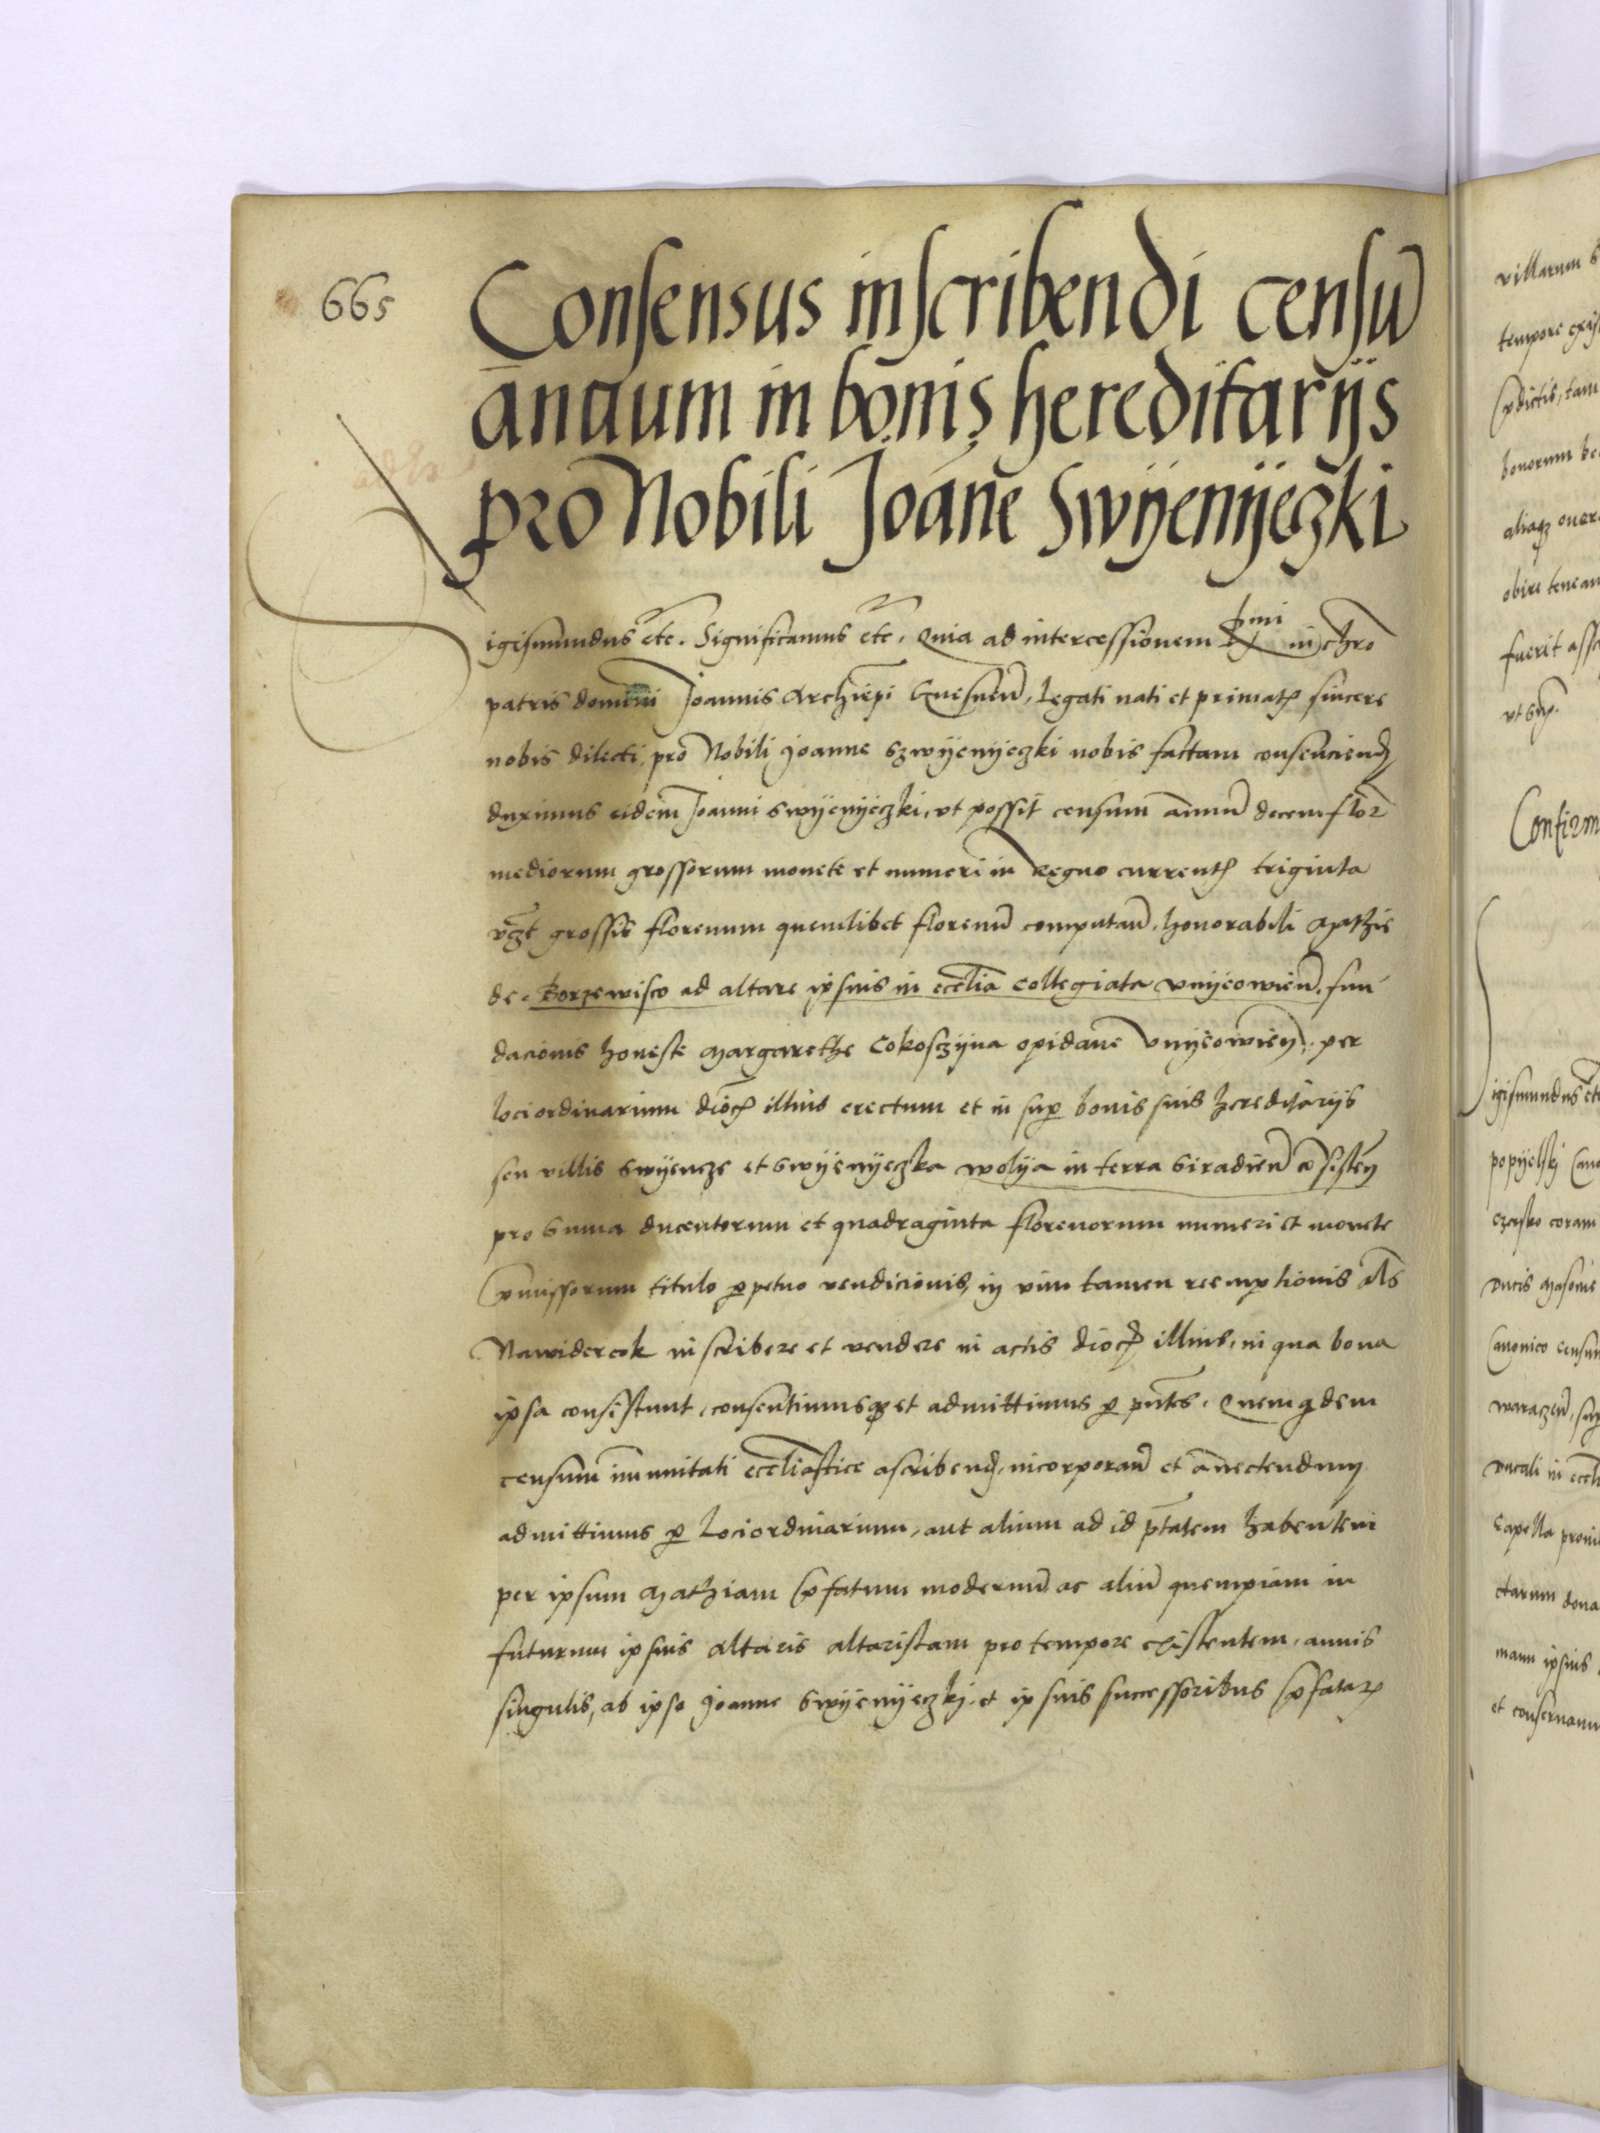 665
Consensus inscribendi censū
annuum in bonis hereditarijs
pro Nobili Joāne Swyenyeczki
igismundus etc. Significamus etc. Quia ad intercessionem Rmi in chro
patris domini Joannis Archiepi Gnesneñ, legati nati et primatis sincere
nobis dilecti, pro Nobili Joanne Szwyenyeczki nobis factam consenciend
duximus eidem Joanni Swyenyeczki, vt possit censum annuū decem flor
mediorum grossorum monete et numeri in Regno currentis triginta
vczt grossis florenum quemlibet florenū computañ, honorabili Mathie
de Borzewisco ad altare ipsius in ecclia Collegiata Vnyeowieñ, fun
dacionis honeste Margarethe Cokoschyna opidane Vnyeowieñ, per
loci ordinarium dioc illius erectum et in sup bonis suis hereditarijs
seu villis Swyencze et Swyenyeczka wolya in terra Siradieñ cōsisteñ
pro Suma ducentorum et quadraginta florenorum numeri et monete
pmissorum titulo ppetuo vendicionis, in vim tamen reemptionis als
Nawiderek inscribere et vendere in actis dioc illius, in qua bona
ipsa consistunt, consentimusq et admittimus p pntes. Quem qdem
censum imunitati eccliastice ascribend, incorporañ et ānectendum
admittimus p loci ordinarium, aut alium ad id ptatem habentem
per ipsum Mathiam pfatum modernū ac aliū quempiam in
futurum ipsius altaris altaristam pro tempore existentem, annis
singulis, ab ipso Joanne Swyenyeczki, et ipsius successoribus pfatar
villarum
tempore
pdictis, tam
bonorum
aliaq
obire
fuerit
vt
Confirm
igismundus etc
popyelski
coram
ducis Masouie
Canonico censum
ducali in
Capella
ctarum
manu ipsius
et conseruamus